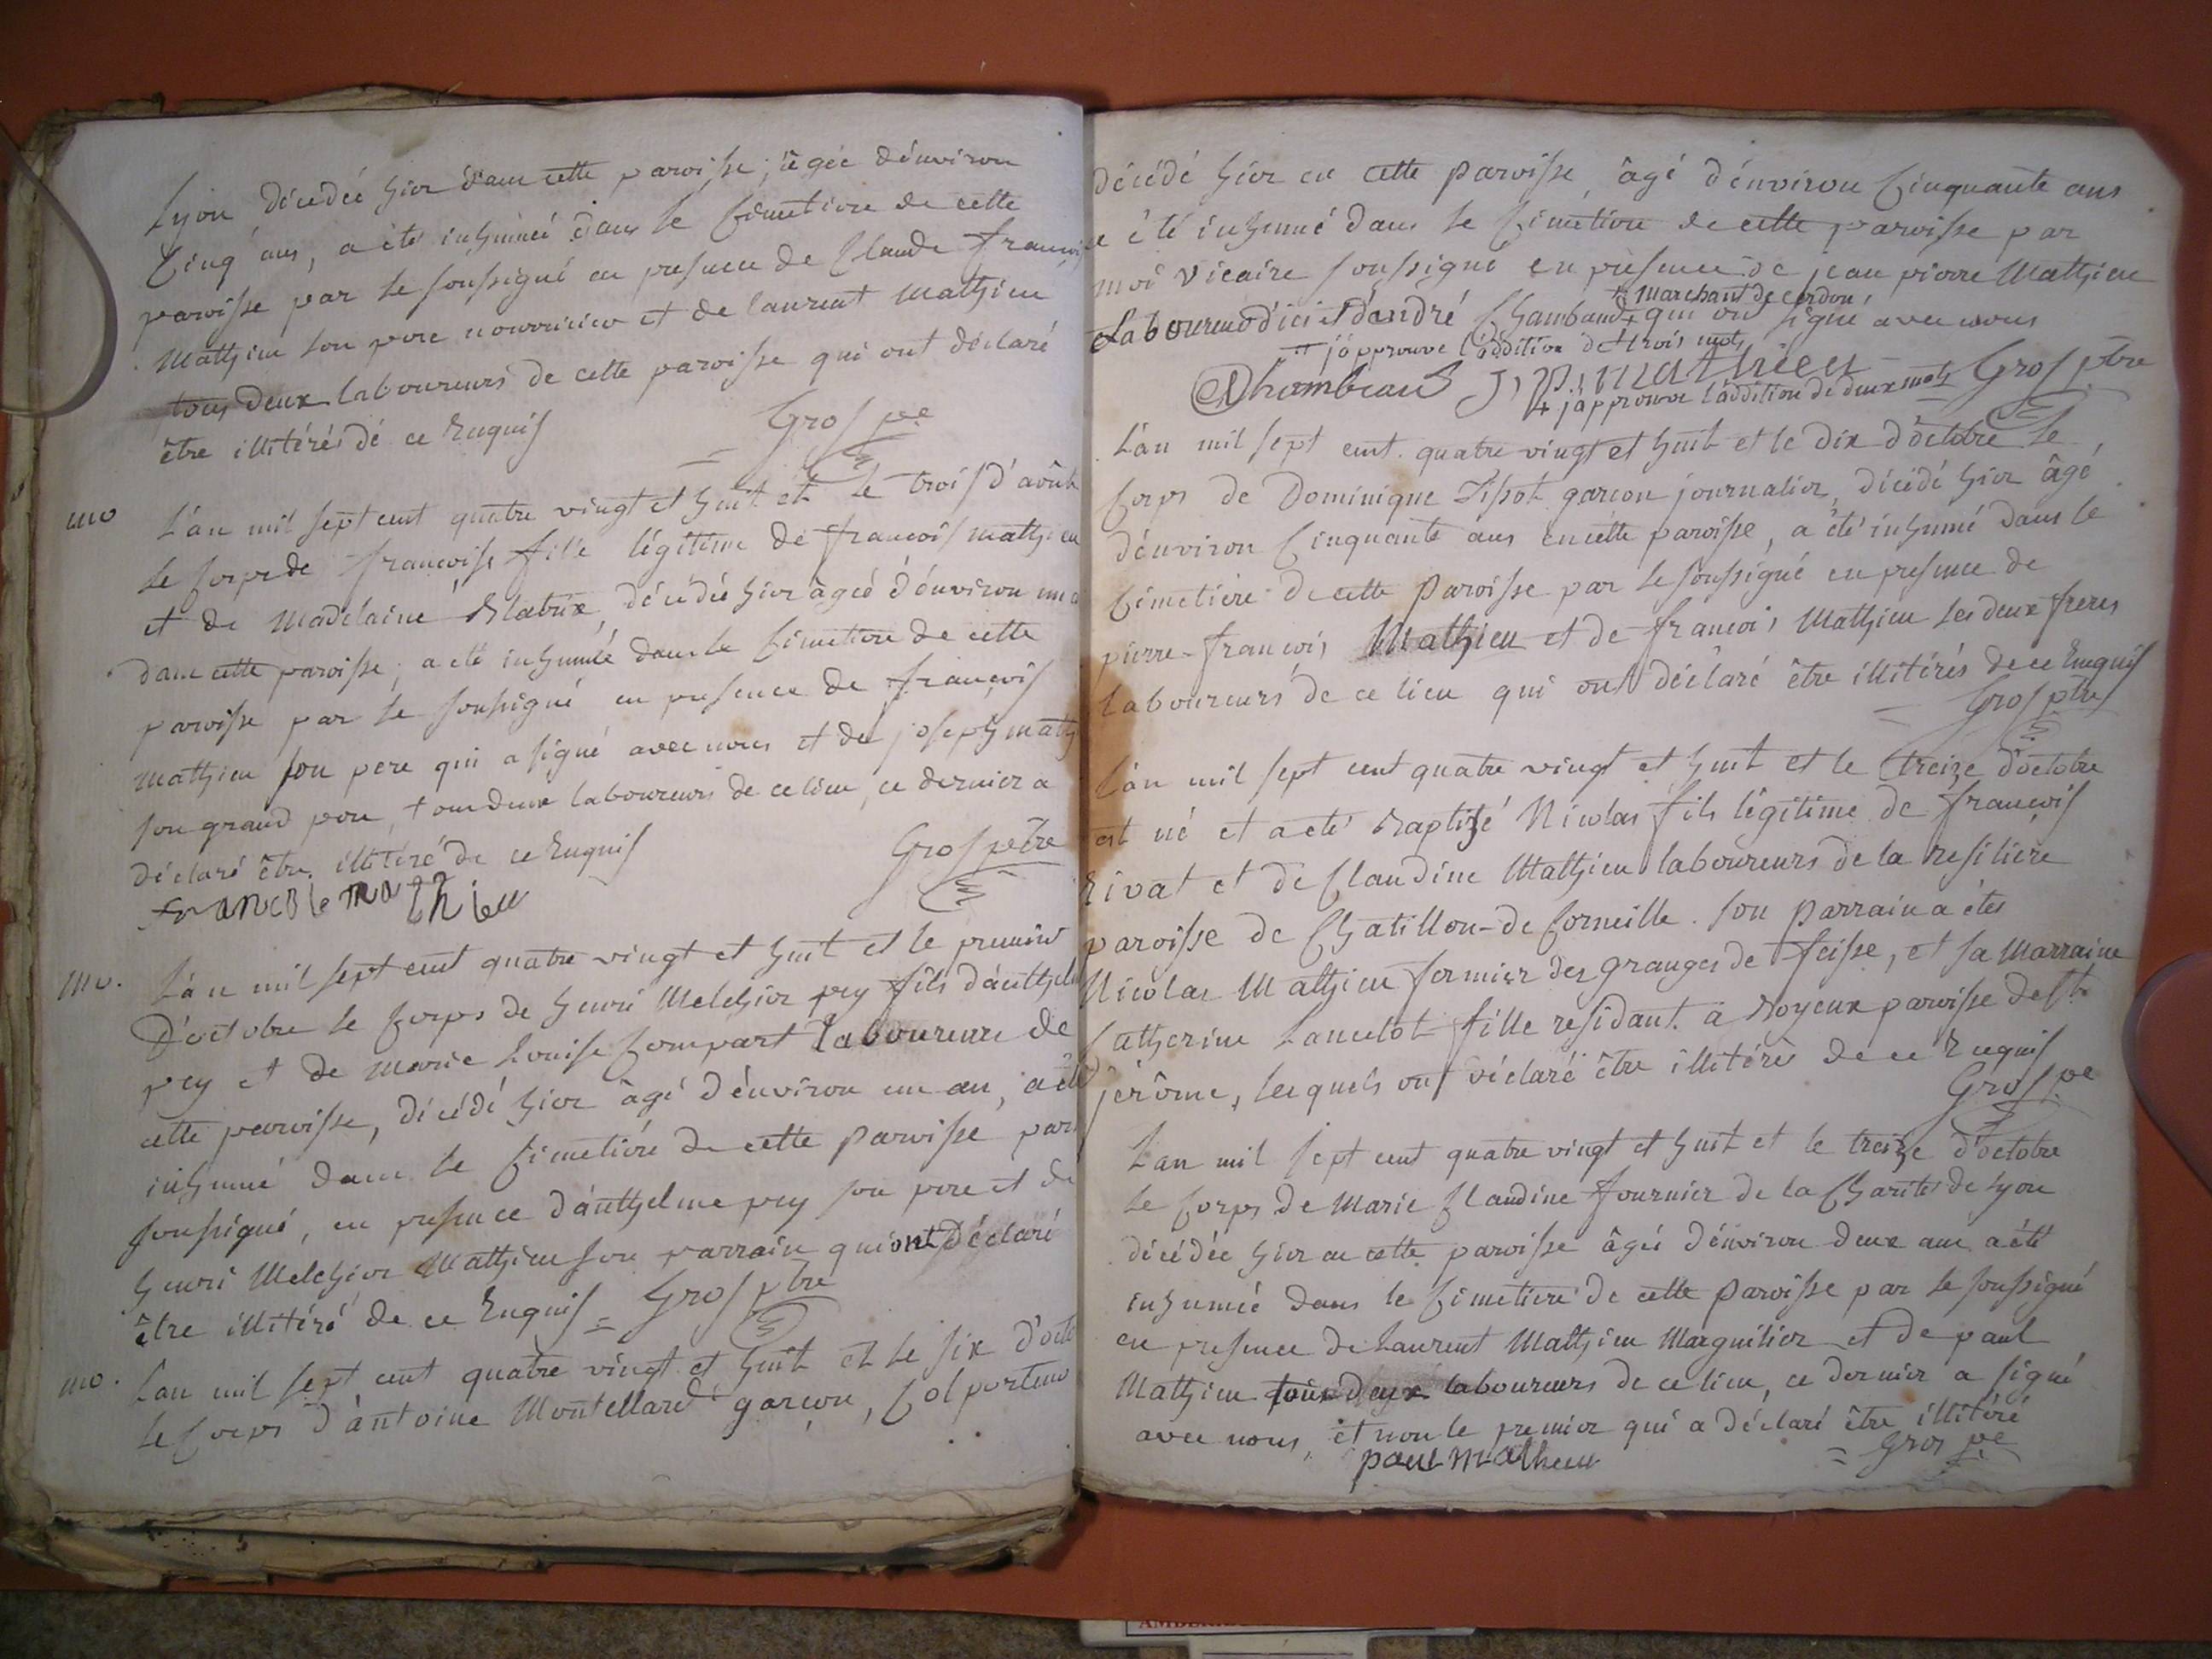 Lyon décedée hier dans cette paroisse, âgée d'environ
Cinq ans, a été inhumée dans le Cimetiere de cette
paroisse par le soussigné en presence de Claude françois
Mathieu son pere nourricier et de laurent Mathieu
tous deux laboureurs de cette paroisse qui ont déclaré
être illitérés dé ce Enquis
Gros ptre
mo
L'an mil sept cent quatre vingt et huit et le trois d'août
le corps de françoise fille légitime de françois mathieu
et de Madelaine Blatrix, décédée hier âgée d'environ un a
dans cette paroisse, a été inhumée dans le Cimetiere de cette
paroisse par le soussigné en presence de françois
mathieu son pere qui a signé avec nous et de joseph math
son grand pere, tous deux laboureurs de ce lieu, ce dernier a
déclaré être illitéré de ce Enquis
Gros petre
francoi le mathieu
mo.
L'an mil sept cent quatre vingt et huit et le premier
D'octobre le Corps de henri Melchior pey fils d'anthel
pey et de marie Louise Compart laboureurs de
cette paroisse, décédé hier âgé d'environ un an, a été
inhumé dans le Cimetiére de cette Paroisse par
soussigné, en presence d'anthelme pey son pere et de
henri Melchior Mathieu son parrain qui ont déclaré
être illitéré de ce Enquis = Gros ptre
mo.
L'an mil sept cent quatre vingt et huit et le six d'octo
le Corps d'antoine Montellard garcon, Colporteur
décédé hier en cette Paroisse, âgé d'environ Cinquante ans
a été inhumé dans le Cimétiere de cette paroisse par
moi Vicaire soussigné en presence de jean pierre Mathieu
+ Marchant de cerdon
Laboureur d'ici et d'andré Chambaud + qui ont signé avec nous
j'approuve l'addition de trois mots
Chambeaud J. P. mathieu Gros ptre
+ j'approuve l'addition de deux mots
L'an mil sept cent quatre vingt et huit et le dix d'octobre le
Corps de Dominique Tissot garcon journalier, décédé hier âgé
d'environ Cinquante ans en cette paroisse, a été inhumé dans le
Cimetiére de cette Paroisse par le soussigné en presence de
pierre-francois Mathieu et de francois Mathieu les deux freres
laboureurs de ce lieu qui ont déclaré être illitérés de ce Enquis
Gros ptre
L'an mil sept cent quatre vingt et huit et le treize d'octobre
est né et a été Baptizé Nicolas fils légitime de françois
Rivat et de Claudine Mathieu laboureurs de la
paroisse de Chatillon-de Corneille. son Parrain a étés
Nicolas Mathieu fermier des granges de feisse, et sa Marraine
Catherine Lancelot fille residant à Boyeux paroisse de st
jérôme, lesquels ont déclaré être illitérés de ce Enquis
Gros pe
L'an mil sept cent quatre vingt et huit et le treize d'octobre
le Corps de Marie Claudine fournier de la Charité de Lyon
décédée hier en cette paroisse âgée d'environ deux ans a été
inhumée dans le Cimetiere de cette Paroisse par le soussigné
en presence de Laurent Mathieu Marguillier et de paul
Mathieu tous deux laboureurs de ce lieu, ce dernier a signé
avec nous, et non le premier qui a déclaré être illitéré
paul matheiu = Gros pe